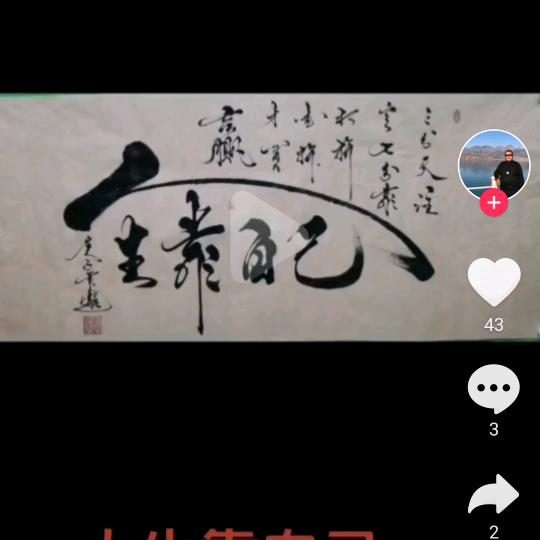 三分天注
定七分靠
打拼
才會
贏
人生靠自己
43
3
2